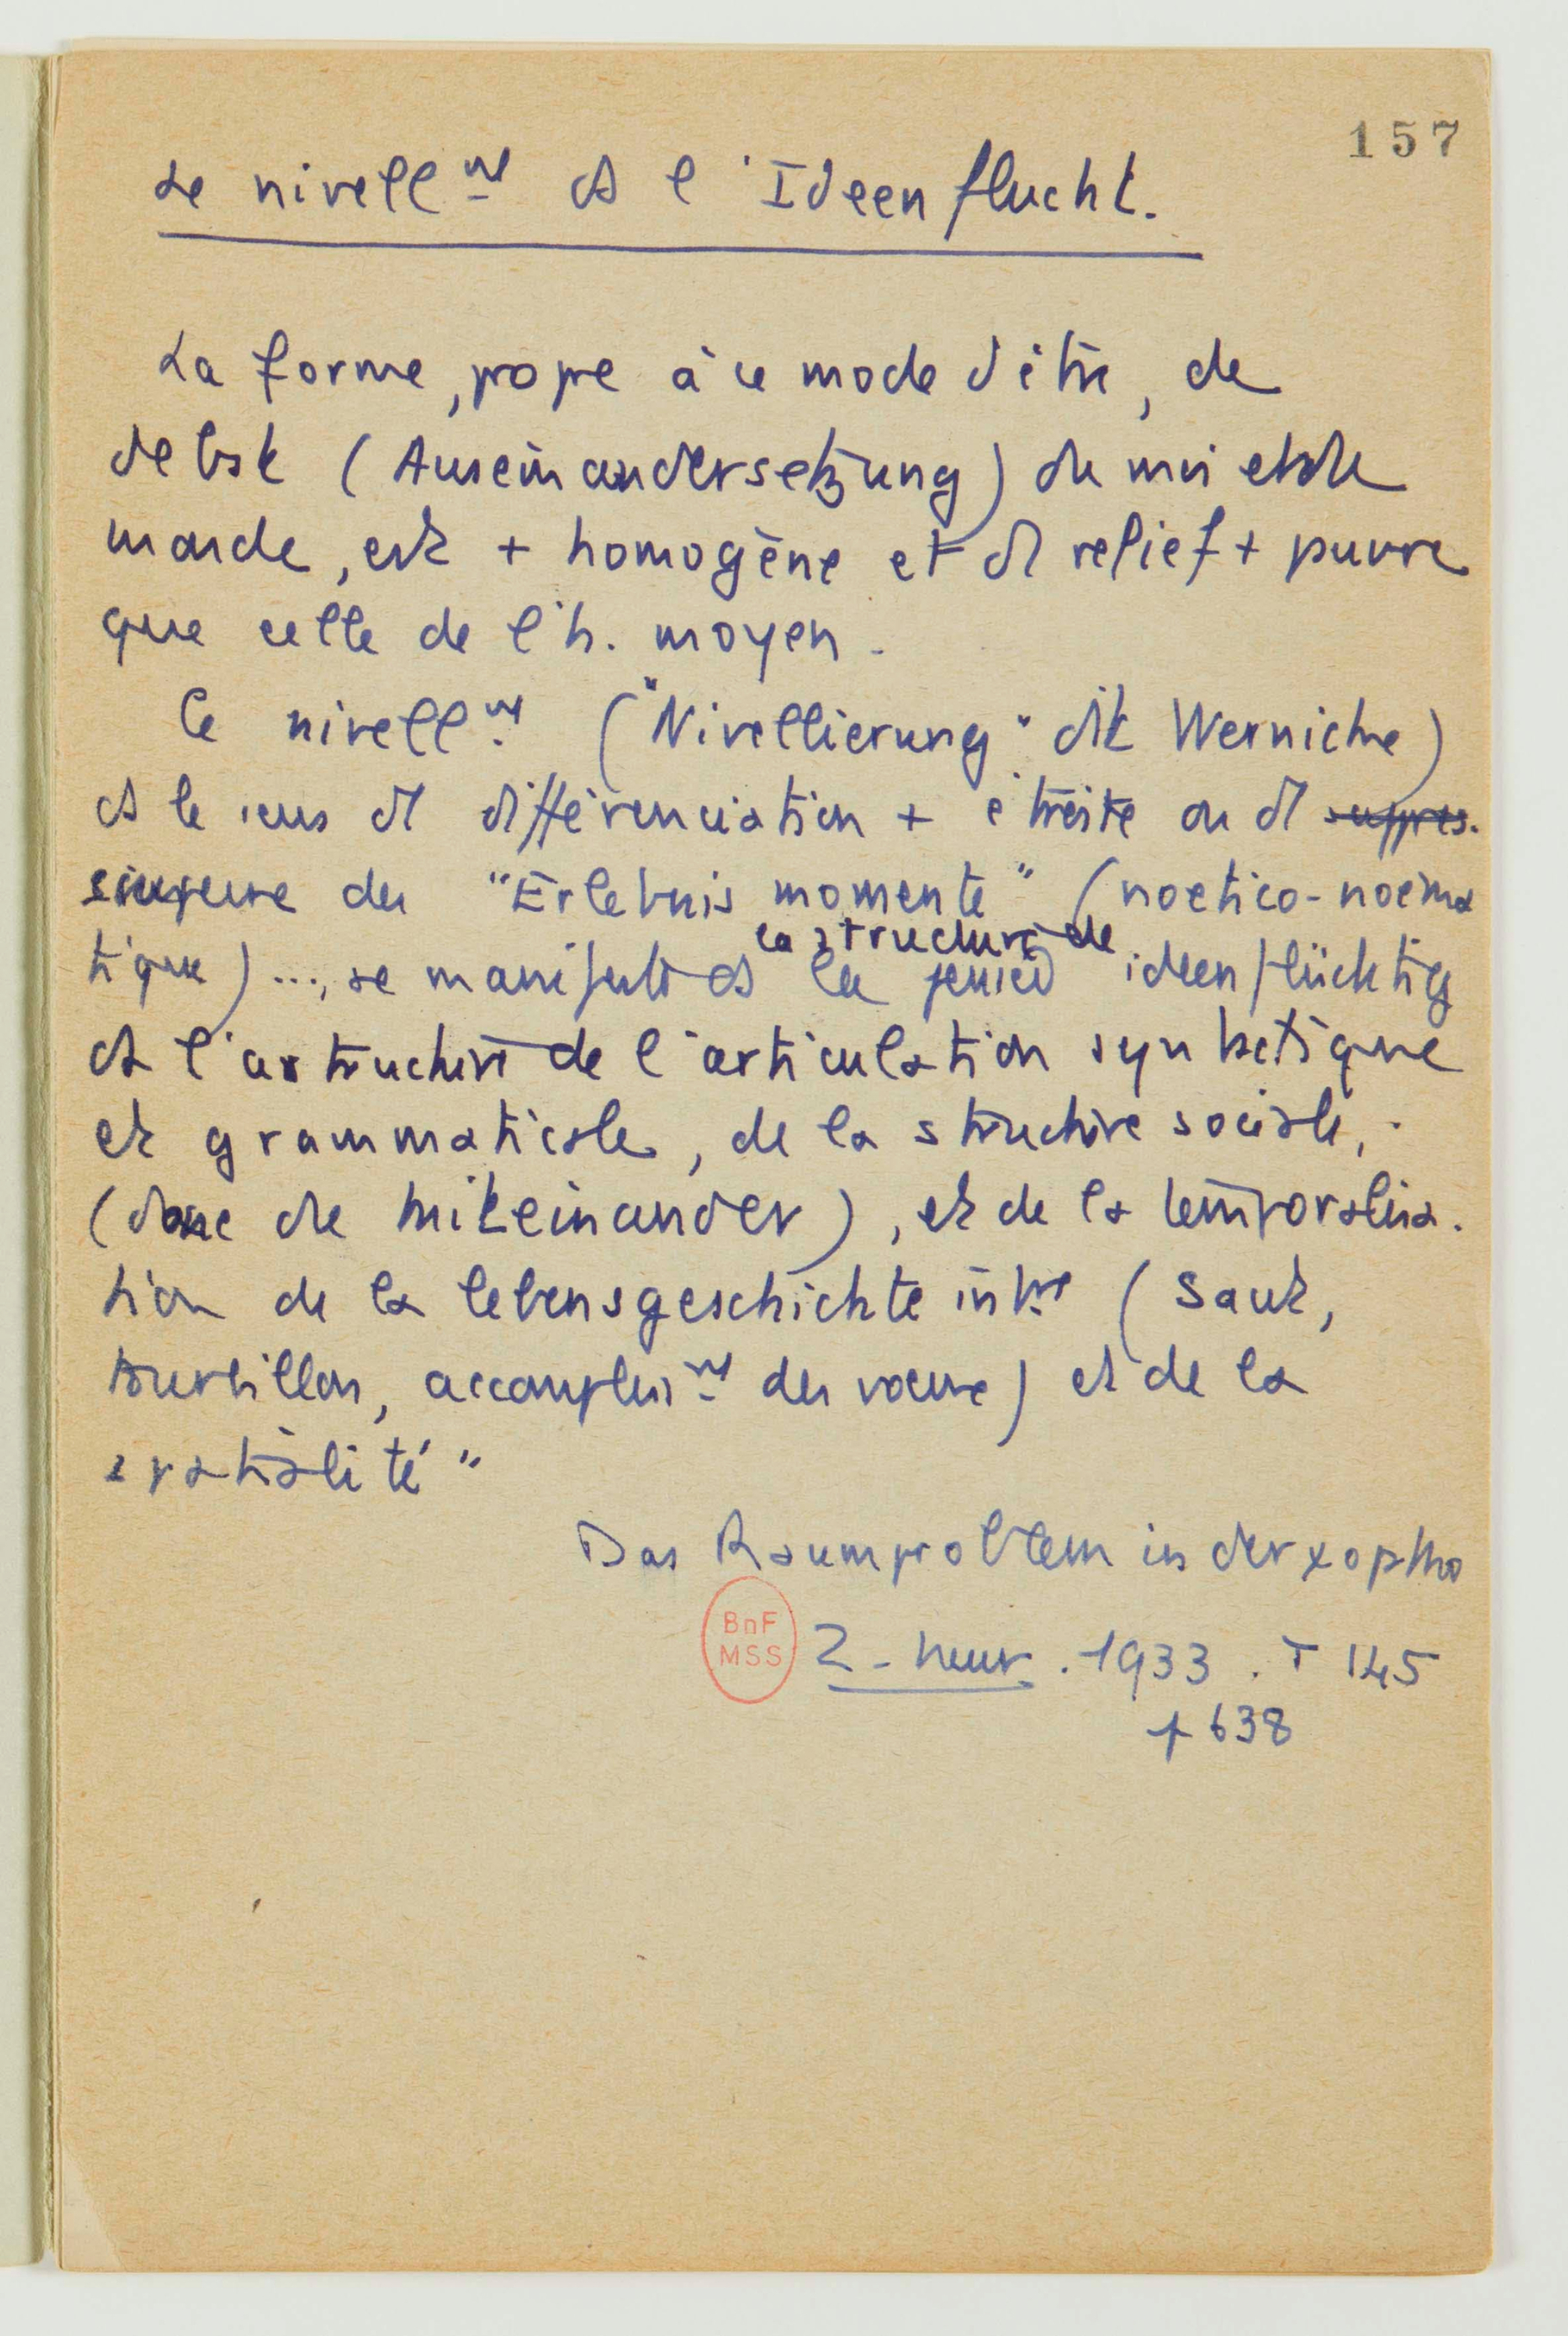 157
Le nivellmt ds l'Ideenflucht.
La forme, propre à ce mode d'être, de
debat (Auseinandersetzung) du moi et du
monde, est + homogène et d relief + pauvre
que celle de l'h. moyen.
Ce nivellmt ("Nivellierung" dit Wernicke)
ds le sens d différenciation + étroite ou d suppres.
des "Erlebnis momente" (noetico-noéma
tique) ..., se manifeste ds la structure de la pensée ideenflüchtig
ds l'astructure de l'articulation syntactique
et grammaticale, de la structure sociale,
(donc du miteinander), et de la temporalisa.
tion de la lebensgeschichte intne (saut,
tourbillon, accomplismt des voeux) et de la
spatialité"
Das Raumproblem in der ψopatho
Z. neur. 1933. T 145
p 638
BnF
MSS